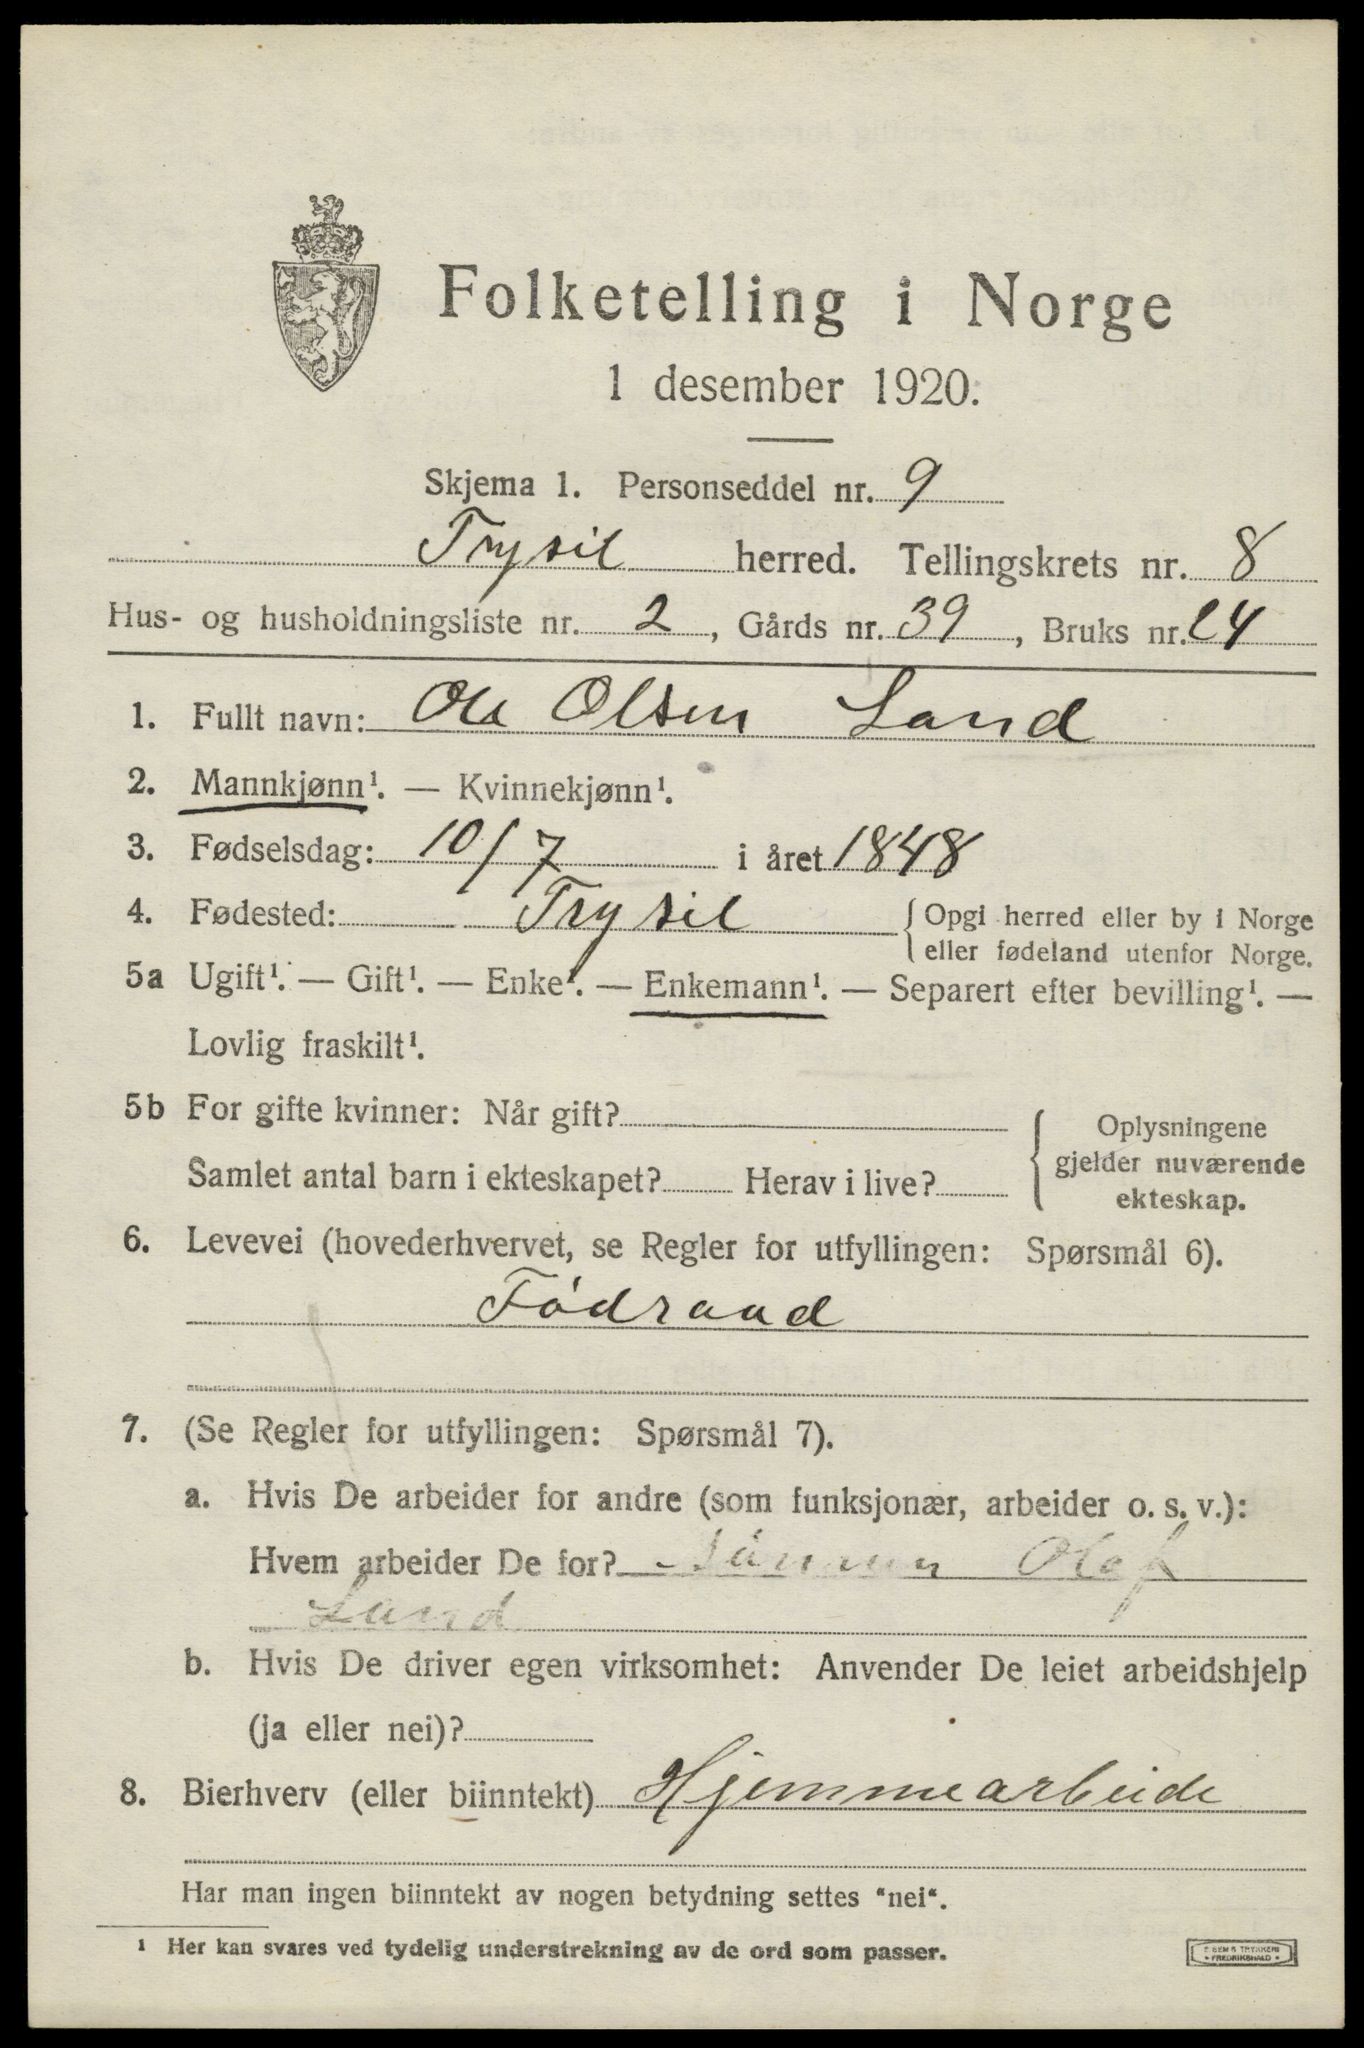 Folketelling i Norge
1 desember 1920.
Skjema 1. Personseddel nr. 9
Trysil herred. Tellingskrets nr. 8
Hus- og husholdningsliste nr. 2, Gårds nr. 39, Bruks nr. 24
1. Fullt navn: Ole Olsen Land
2. Mannkjønn¹. — Kvinnekjønn¹.
3. Fødselsdag: 10/7 i året 1848
4. Fødested: Trysil {Opgi herred eller by i Norge
eller fødeland utenfor Norge.
5a Ugift¹. — Gift¹. — Enke¹. — Enkemann¹. — Separert efter bevilling¹. —
Lovlig fraskilt¹.
5b For gifte kvinner: Når gift?
Samlet antal barn i ekteskapet? Herav i live?
Oplysningene
gjelder nuværende
ekteskap.
6. Levevei (hovederhvervet, se Regler for utfyllingen: Spørsmål 6).
Födraad
7. (Se Regler for utfyllingen: Spørsmål 7).
a. Hvis De arbeider for andre (som funksjonær, arbeider o. s. v.):
Hvem arbeider De for? Sönnen Olaf
Land
b. Hvis De driver egen virksomhet: Anvender De leiet arbeidshjelp
(ja eller nei)?
8. Bierhverv (eller biinntekt) Hjemmearbeide
Har man ingen biinntekt av nogen betydning settes "nei".
¹ Her kan svares ved tydelig understrekning av de ord som passer.
TRYKKERI
FREDRIKSHALD